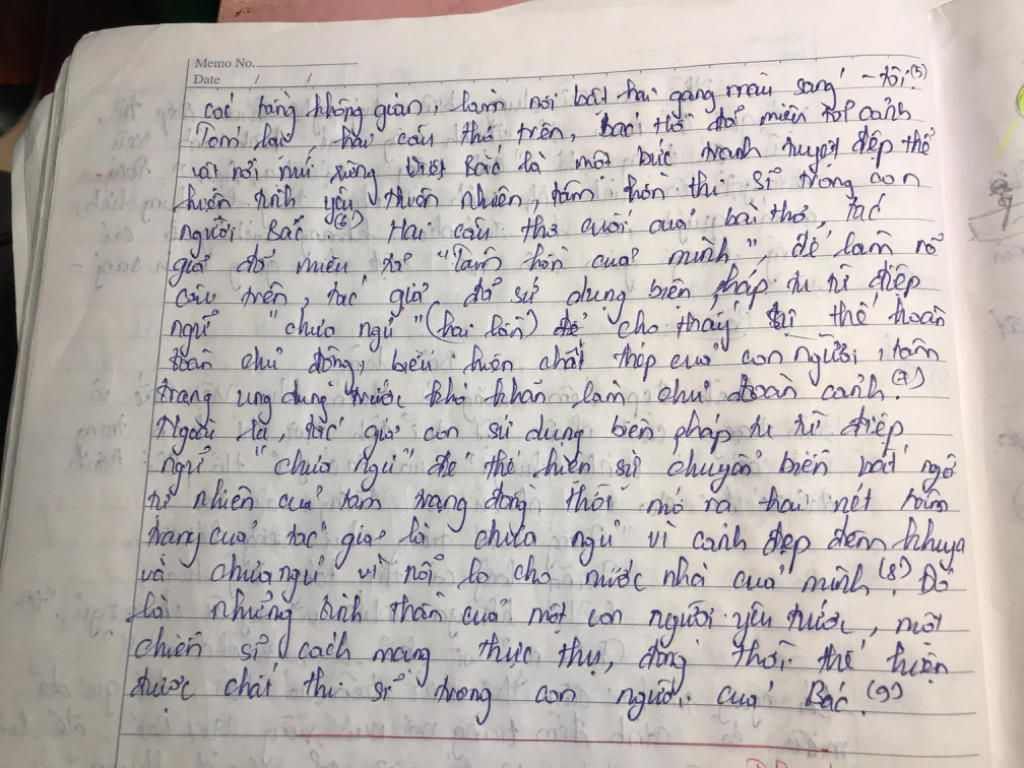 Memo No.
Date / /
các tầng không gian, làm nổi bật hai gang màu sang - tối.(5)
Tóm lại, hai câu thơ trên, Bác Hồ đã miêu tả cảnh
vật nơi núi rừng Việt Bắc là một bức tranh tuyệt đẹp thể
hiện tình yêu thiên nhiên, tâm hồn thi sĩ trong con
người Bác (6) Hai câu thơ cuối cuả bài thơ, tác
giả đã miêu tả "Tâm hồn của mình", để làm rõ
câu trên, tác giả đã sử dụng biện pháp tu từ điệp
ngữ "chưa ngủ" (hai lần) để cho thấy thế hoàn
toàn chủ động, biểu hiện chất thép cuả con người, tâm
trạng ung dung trước khó khăn làm chủ hoàn cảnh.(7)
Ngoài ra, tác giả còn sử dụng biện pháp tu từ điệp
ngữ "chưa ngủ" để thể hiện sự chuyển biến bất ngờ
tự nhiên cuả tâm trạng đồng thời mở ra hai nét tâm
trạng cuả tác giả là chưa ngủ vì cảnh đẹp đêm khuya
và chưa ngủ vì nỗi lo cho nước nhà cuả mình.(8) Đó
là những tinh thần cuả một con người yêu nước, một
chiến sĩ cách mạng thực thụ, đồng thời thể hiện
được chất thi sĩ trong con người cuả Bác.(9)